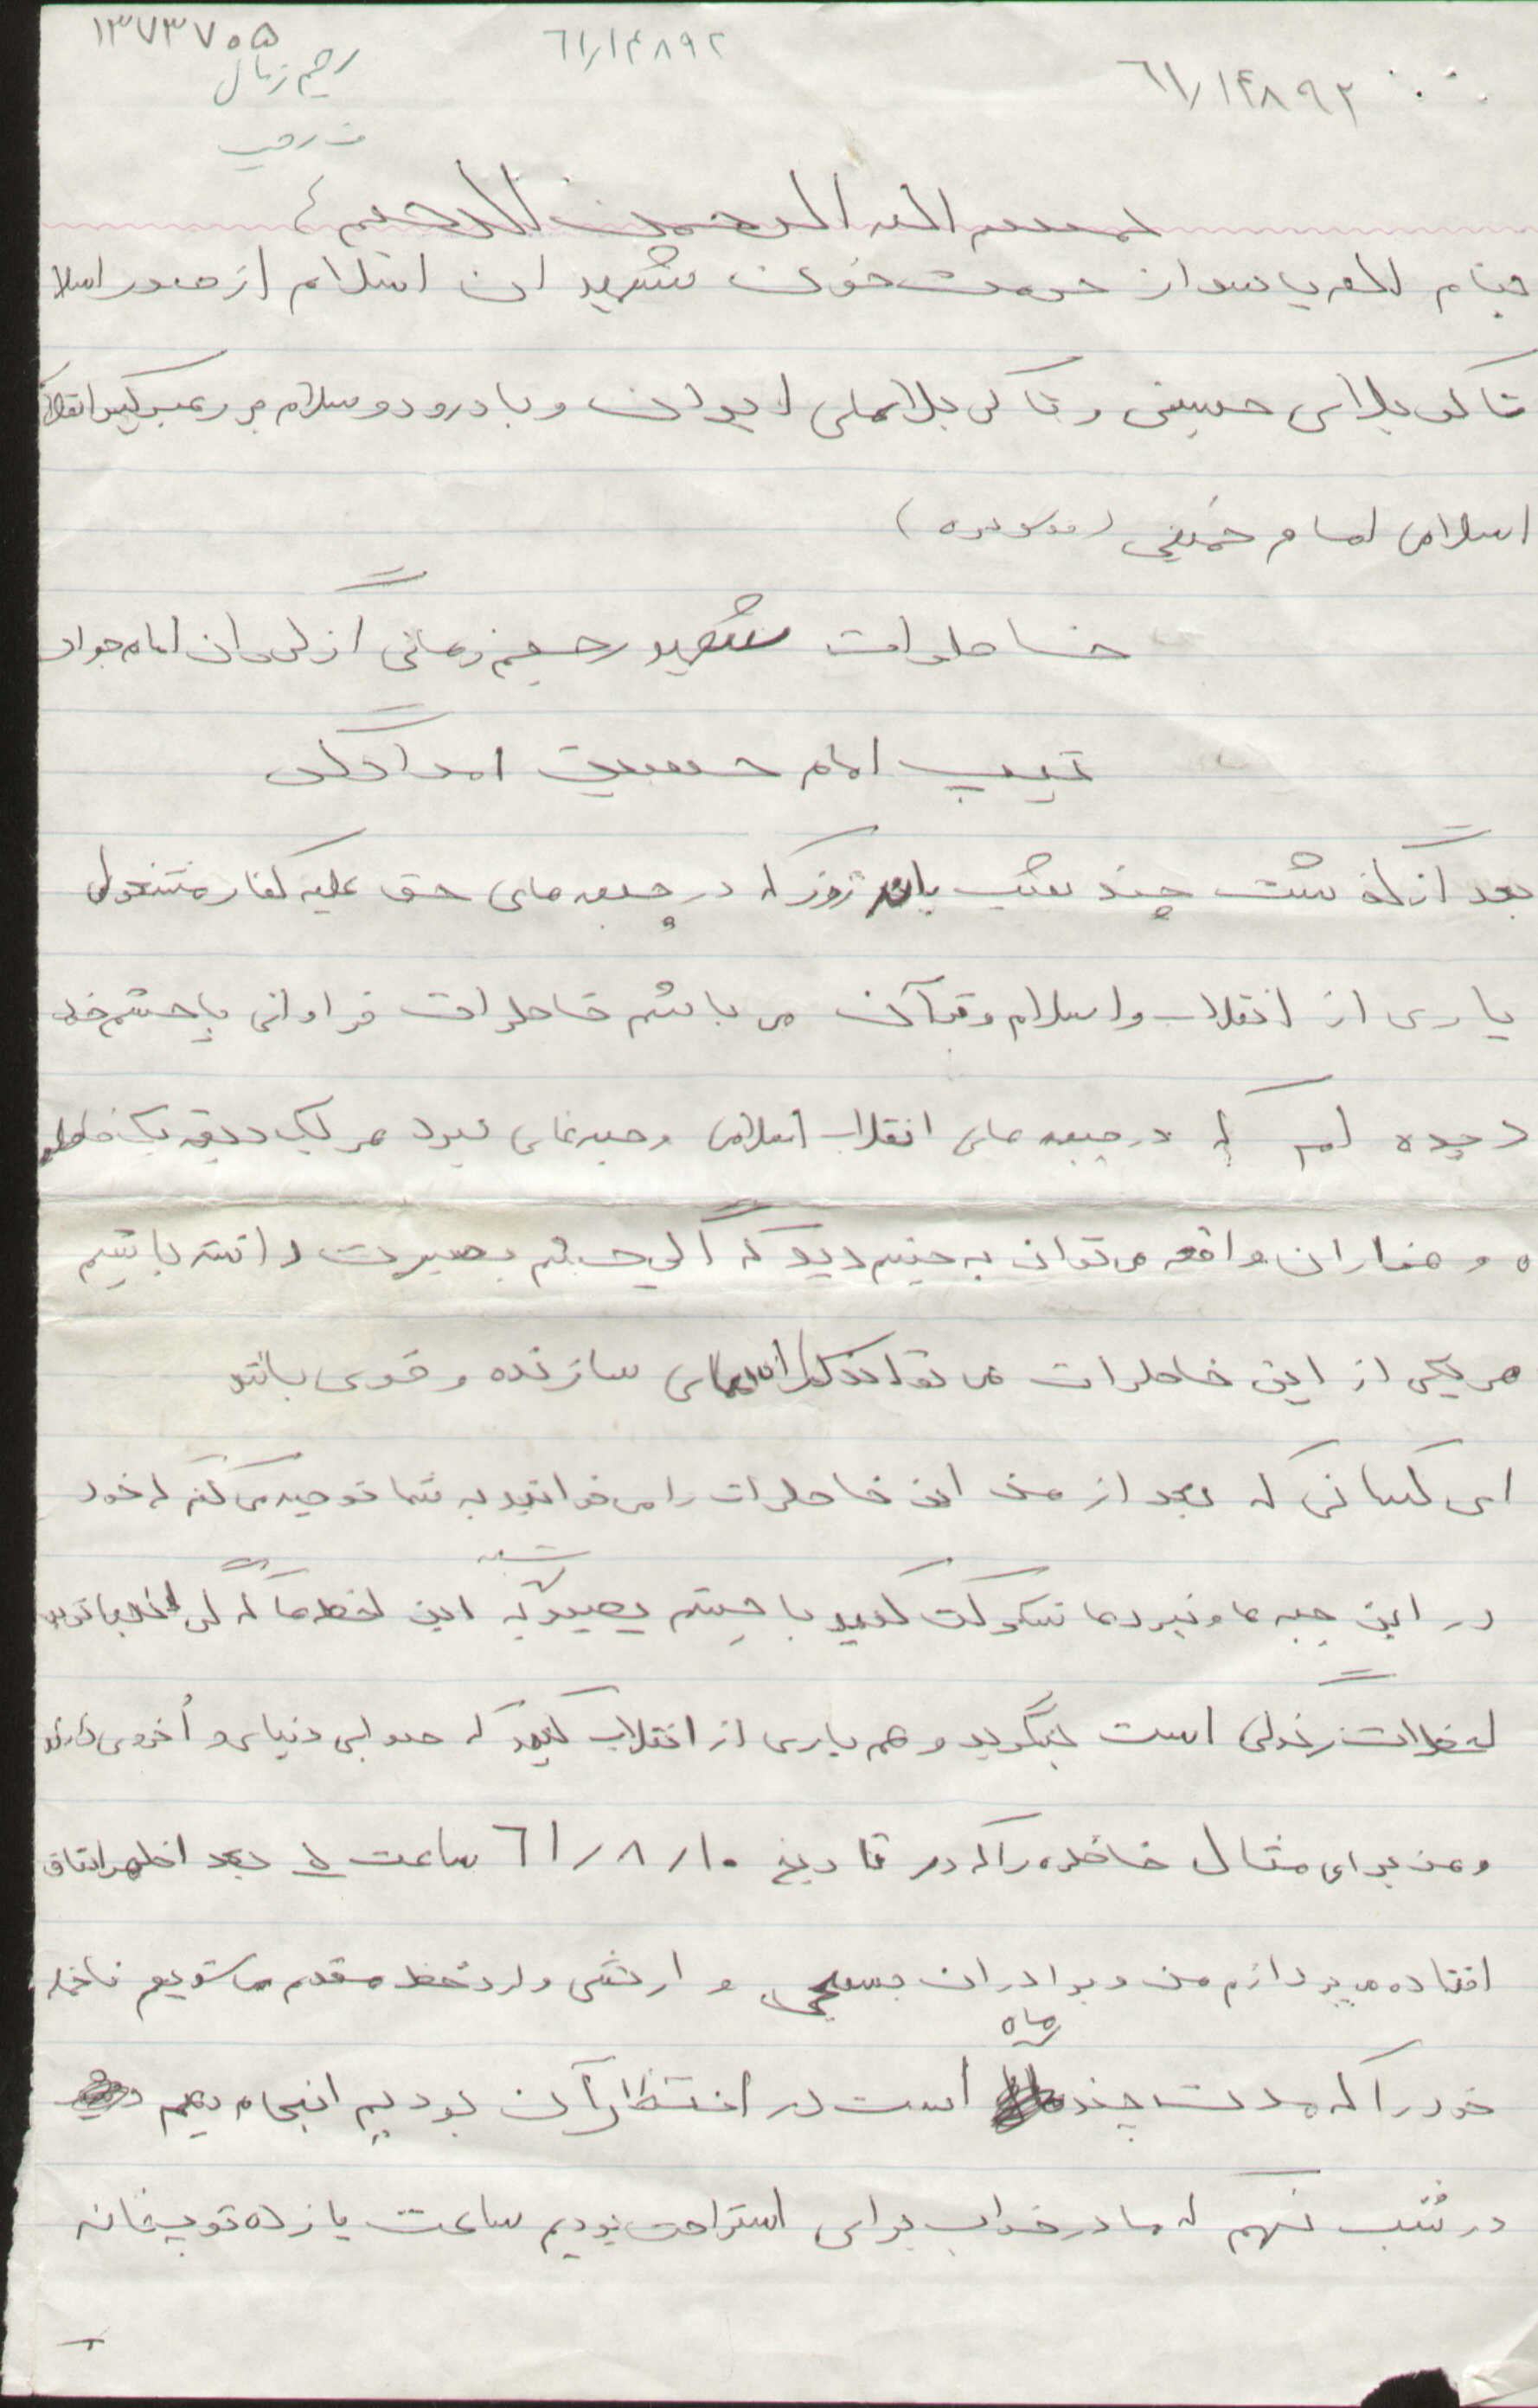 ۱۳۷۳۷۰۵
۶۱/۱۴۸۹۲
رحیم زمانی
۶۱/۱۴۸۹۲
بسم الله الرحمن الرحیم
بنام الله پاسدار حرمت خون شهیدان اسلام از صدر اسلا
تا کربلای حسینی و تا کربلاهای ایران و با درود و سلام بر رهبر کبیر انقلاب
اسلامی امام خمینی
خاطرات شهید رحیم زمانی از گردان امام جواد
تیپ امام حسین امدادگر
بعد از گذشت چند شب روز که در جبهه های حق علیه کفار مشغول
یاری از انقلاب و اسلام و قرآن می باشم خاطرات فراوانی با چشم خود
دیده ام که در جبهه های انقلاب اسلامی و جبهه های نبرد هر یک دقیقه یک خاطر
ه و هزاران واقعه می توان به چشم دید که اگر چشم بصیرت داشته باشیم
هر یکی از این خاطرات می تواند سازنده و قوی باشد
ای کسانی که بعد از من این خاطرات را می خوانید به شما توصیه می کنم که خود
در این جبهه ها و نبردها شرکت کنید با چشم ببینید این لحظه ها که
لحظات است بنگرید و هم یاری از انقلاب کنید که دنیای و اُخروی دارد
و من برای مثال خاطره را که در تاریخ ۶۱/۸/۱۰ ساعت بعد از ظهر اتفاق
افتاده می پردازم من و برادران بسیجی و ارتشی وارد خط مقدم می شویم تا حمله
ماه
خود را که مدت چند است در انتظار آن بودیم انجام دهیم
در شب نهم که ما در خواب برای استراحت بودیم ساعت یازده توپخانه